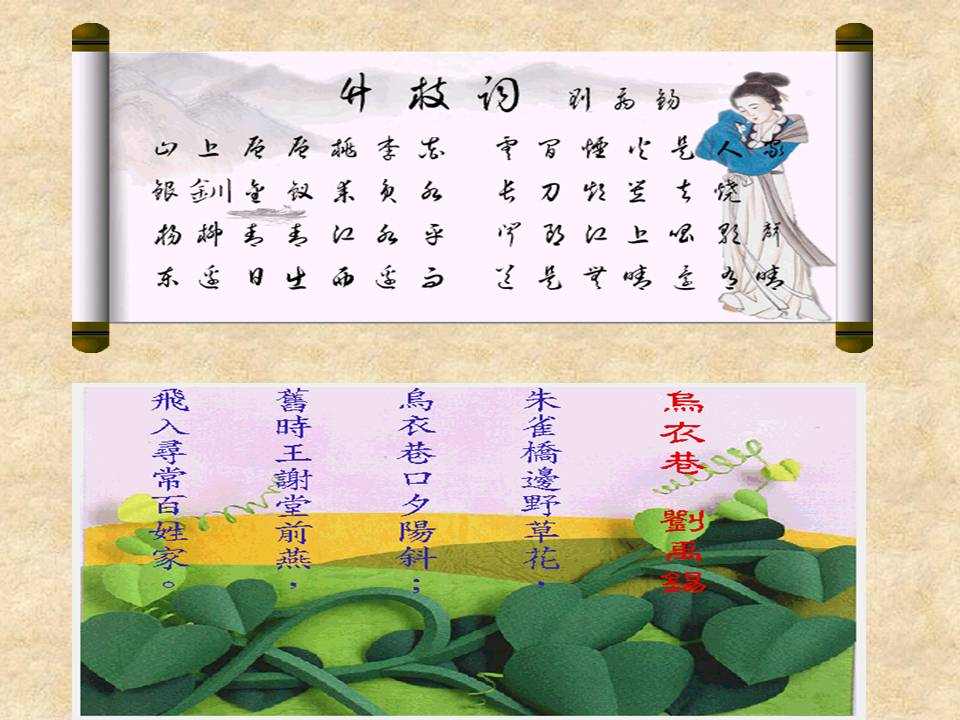 竹枝词 刘禹锡
山上层层桃李花 云间煙火是人家
银钏金钗来负水 长刀短笠去烧
杨柳青青江水平 闻郎江上唱歌声
东边日出西边雨 道是无晴还有晴
烏衣巷 劉禹錫
朱雀橋邊野草花，
烏衣巷口夕陽斜；
舊時王謝堂前燕，
飛入尋常百姓家。